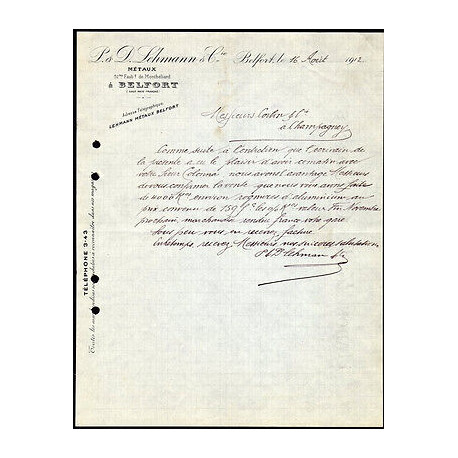 P. & D. Lehmann & Cie
Belfort, le 16 Août 1912
MÉTAUX
Faubg de Montbéliard
à BELFORT
Adresse Télégraphique
LEHMANN MÉTAUX BELFORT
Messieurs & Cie
à Champagney
Comme suite à l'entretien que l'écrivain de
la présente a eu le plaisir d'avoir ce matin avec
votre Sieur nous avons l'avantage Messieurs
de vous confirmer la vente que nous vous avons faite
de environ rognures d'aluminium au
prix convenu de 159 f les % Kos valeur fin Novembre
prochain, marchandise rendue franco votre gare.
Sous peu vous en recevrez facture
Entretemps, recevez Messieurs nos sincères salutations
P & D Lehmann & Cie
TÉLÉPHONE 3-43
Toutes les marchandises